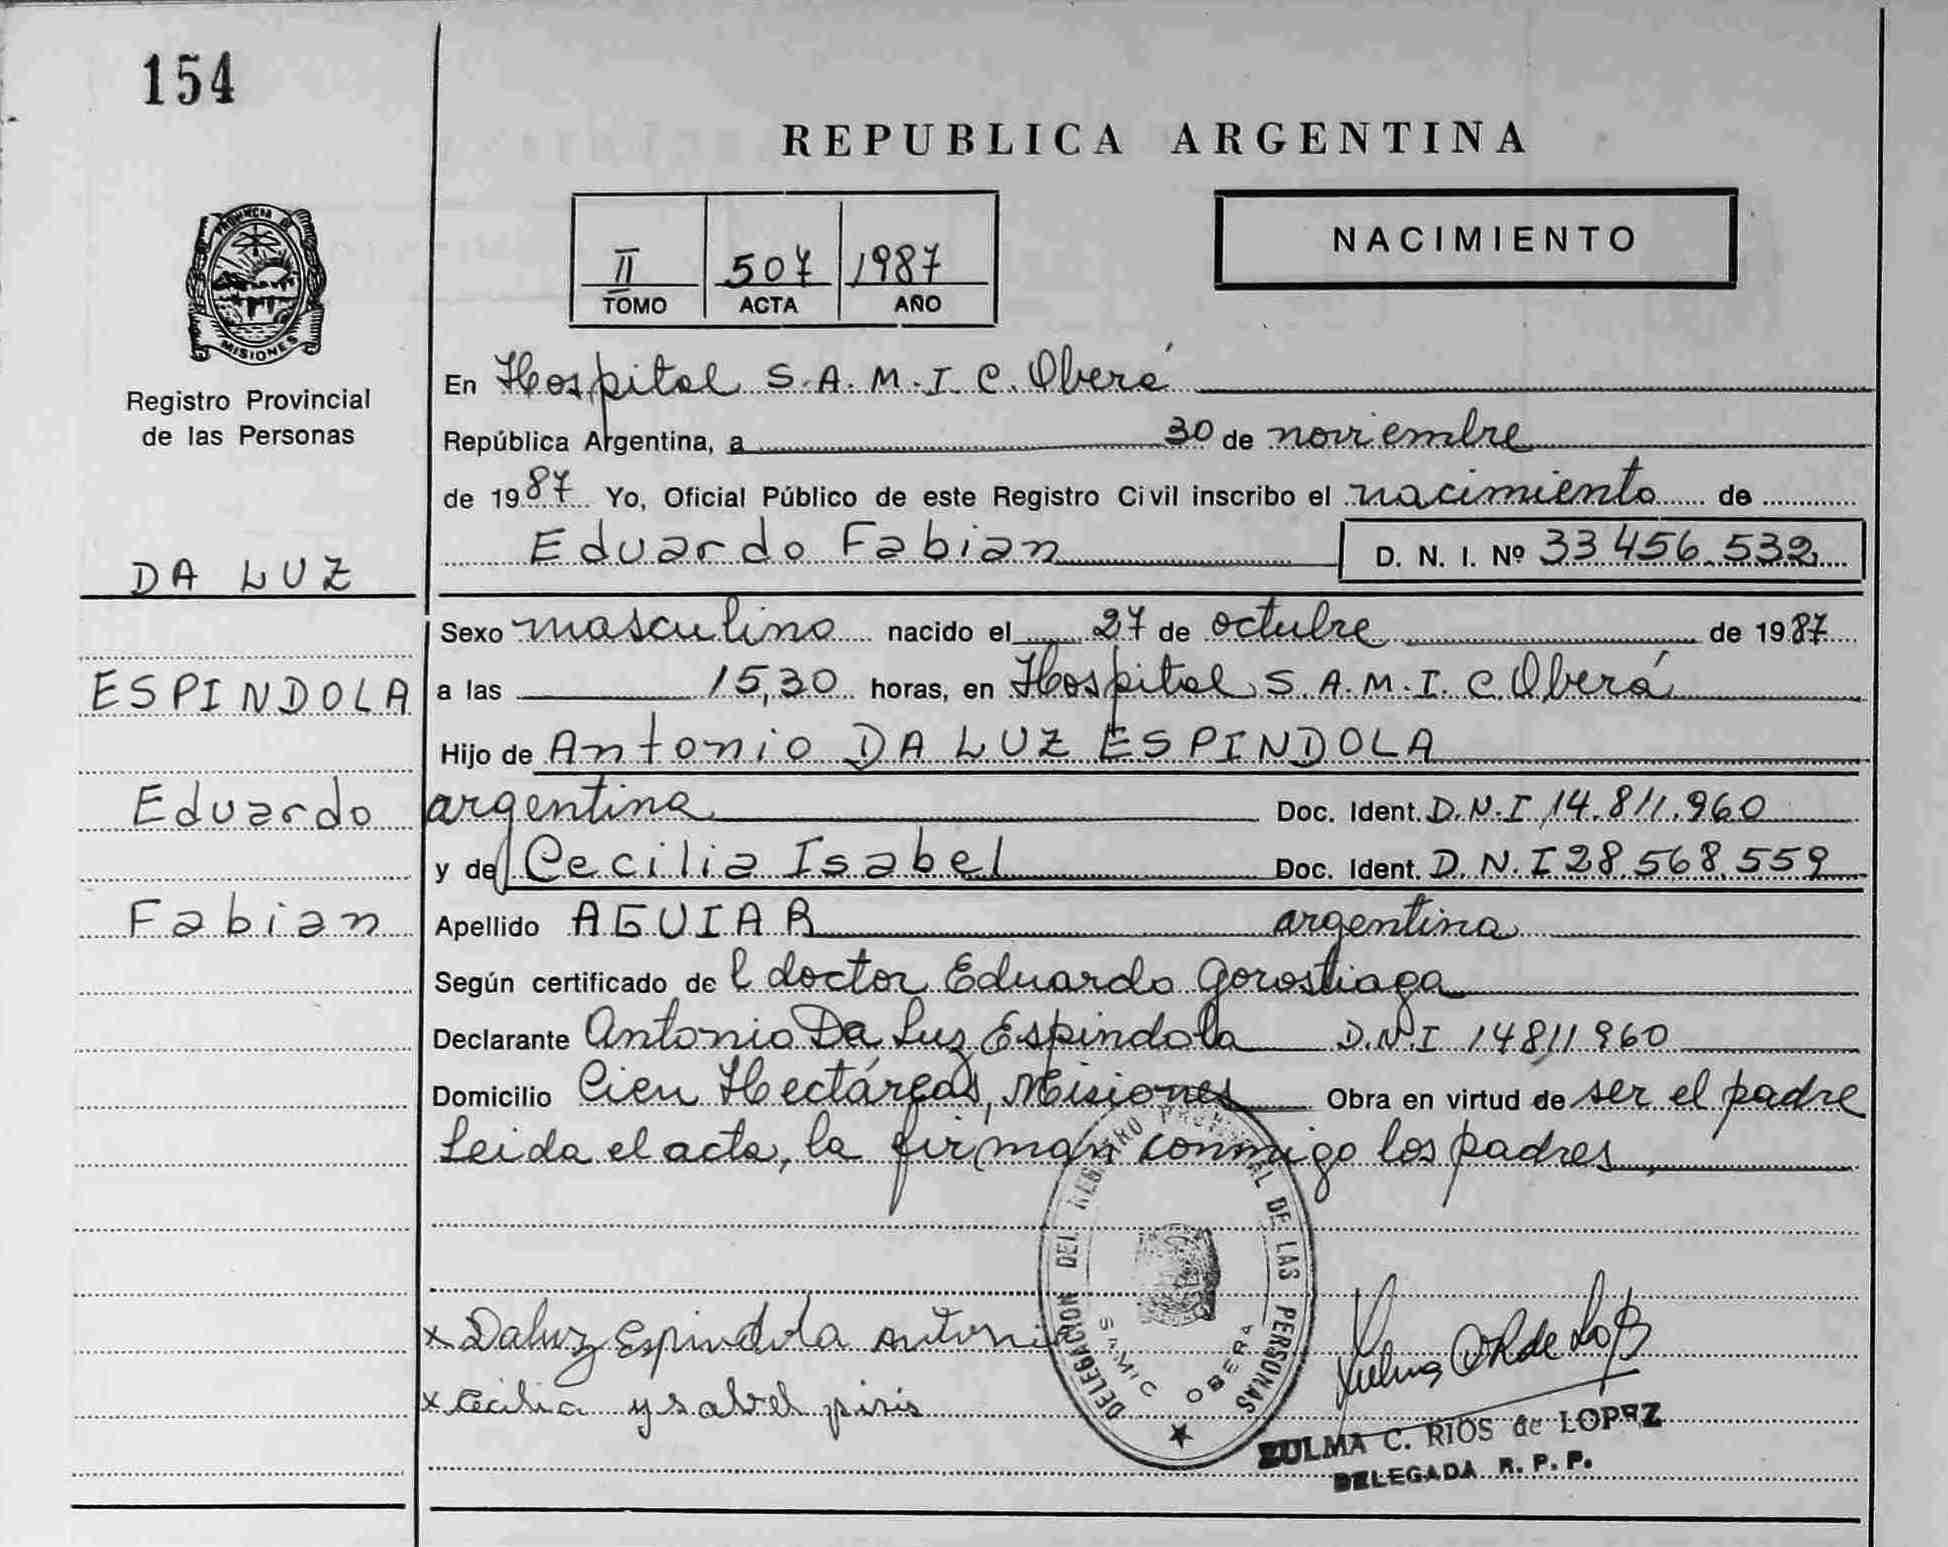 154
REPUBLICA ARGENTINA
II 507 1987
TOMO ACTA AÑO
NACIMIENTO
PROVINCIA DE
MISIONES
Registro Provincial
de las Personas
DA LUZ
ESPINDOLA
Eduardo
Fabian
En Hospital S.A.M.I.C. Oberá
República Argentina, a 30 de noviembre
de 1987 Yo, Oficial Público de este Registro Civil inscribo el nacimiento de
Eduardo Fabian D. N. I. Nº 33.456.532
Sexo masculino nacido el 27 de octubre de 1987
a las 15,30 horas, en Hospital S.A.M.I.C. Oberá
Hijo de Antonio DA LUZ ESPINDOLA
argentina Doc. Ident. D.N.I 14.811.960
y de Cecilia Isabel Doc. Ident. D.N.I 28.568.559
Apellido AGUIAR argentina
Según certificado de l doctor Eduardo Gorostiaga
Declarante Antonio Da Luz Espindola D.N.I 14811960
Domicilio Cien Hectáreas, Misiones Obra en virtud de ser el padre
Leida el acta, la firman conmigo los padres,
x Daluz Espindola Antoni
x Cecilia ysabel piris
DELEGACION DEL REGISTRO PROVINCIAL DE LAS PERSONAS
SAMIC OBERA
ZULMA C. RIOS de LOPEZ
DELEGADA R. P. P.